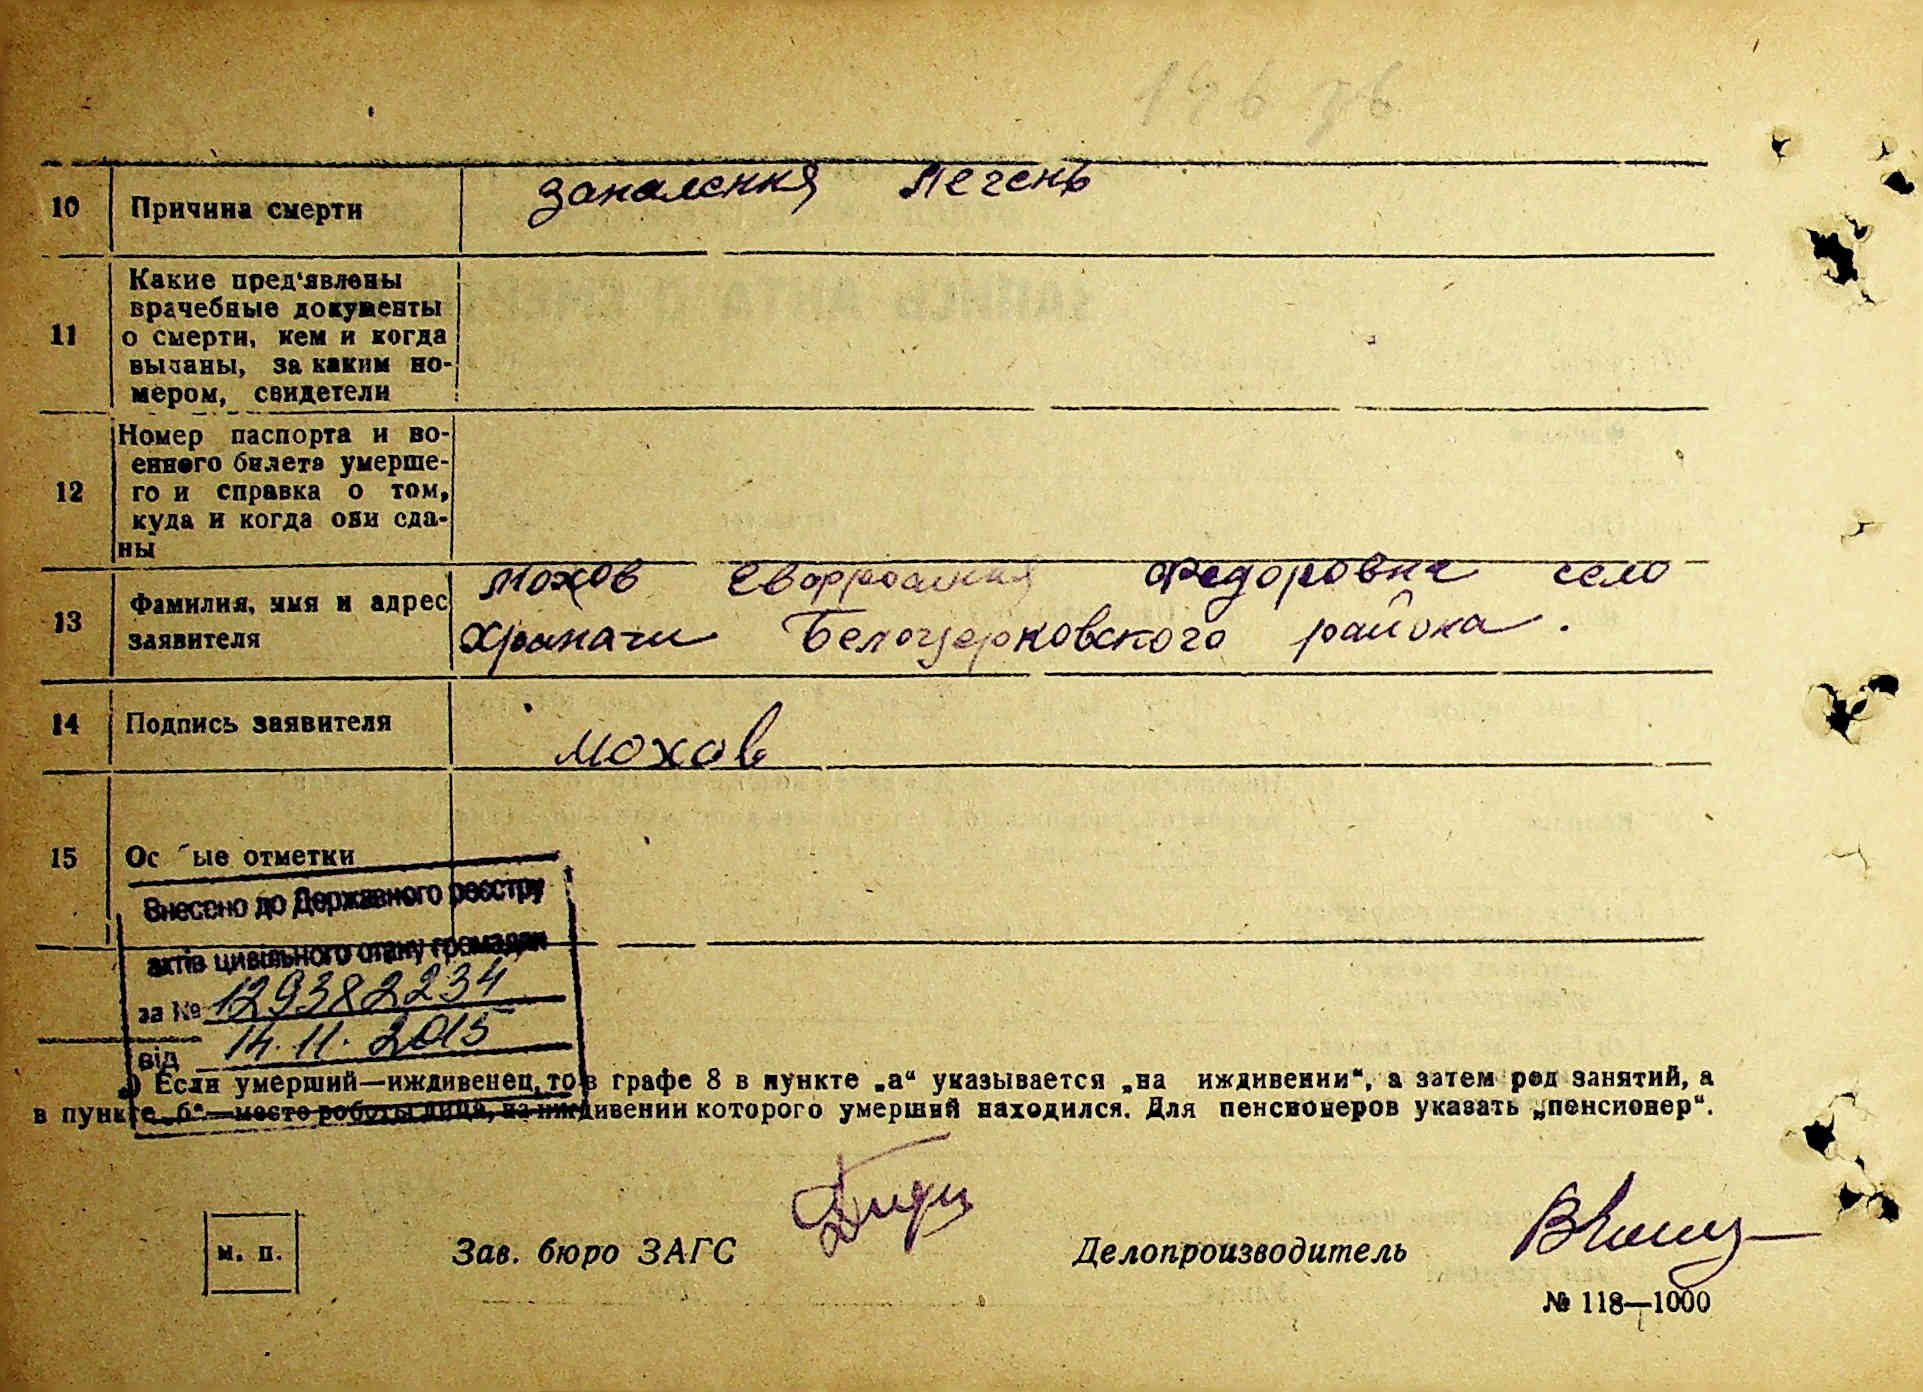 10 Причина смерти запалення печень
11 Какие пред‘явлены
врачебные документы
о смерти, кем и когда
выданы, за каким но-
мером, свидетели
12 Номер паспорта и во-
енного билета умерше-
го и справка о том,
куда и когда они сда-
ны
13 Фамилия, имя и адрес
заявителя
Мохов Федоровна село
Храпачи Белоцерковского района.
14 Подпись заявителя Мохов
15 Ос ые отметки
Внесено до Державного реєстру
актів цивільного стану громадян
за № 129382234
від 14.11.2015
) Если умерший—иждивенец, то в графе 8 в пункте „а“ указывается „на иждивении“, а затем род занятий, а
в пункте „б“—место работы лица, на иждивении которого умерший находился. Для пенсионеров указать „пенсионер“.
м. п. Зав. бюро ЗАГС Делопроизводитель
№ 118—1000